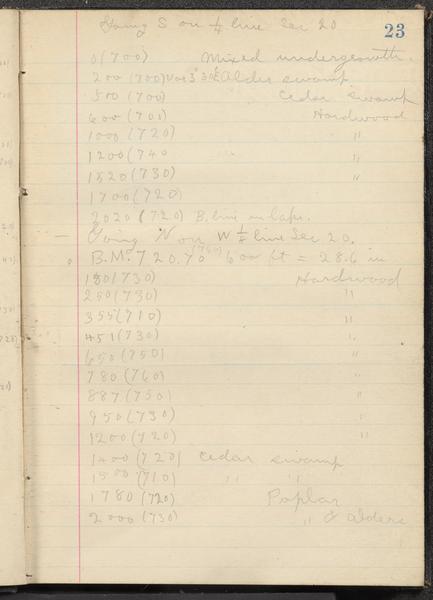 23
Going S on 1/4 line Sec 20
0 (700) Mixed undergrowth.
200 (700) Var 3° 30' E Alder swamp
500 (700) Cedar swamp
600 (701) Hardwood
1000 (720) "
1200 (740 "
1520 (730) "
1700 (720)
2020 (720) B. line in lake.
— Going N on W 1/8 line Sec 20.
0 B.M. 720.70 600 ft = 28.6 in
180 (730) Hardwood
250 (730) "
355 (710) "
451 (730) "
650 (750) "
780 (760) "
887 (750) "
950 (730) "
1200 (720) "
1400 (720) Cedar swamp
1500 (710) " "
1780 (720) Poplar
2000 (730) " & alders